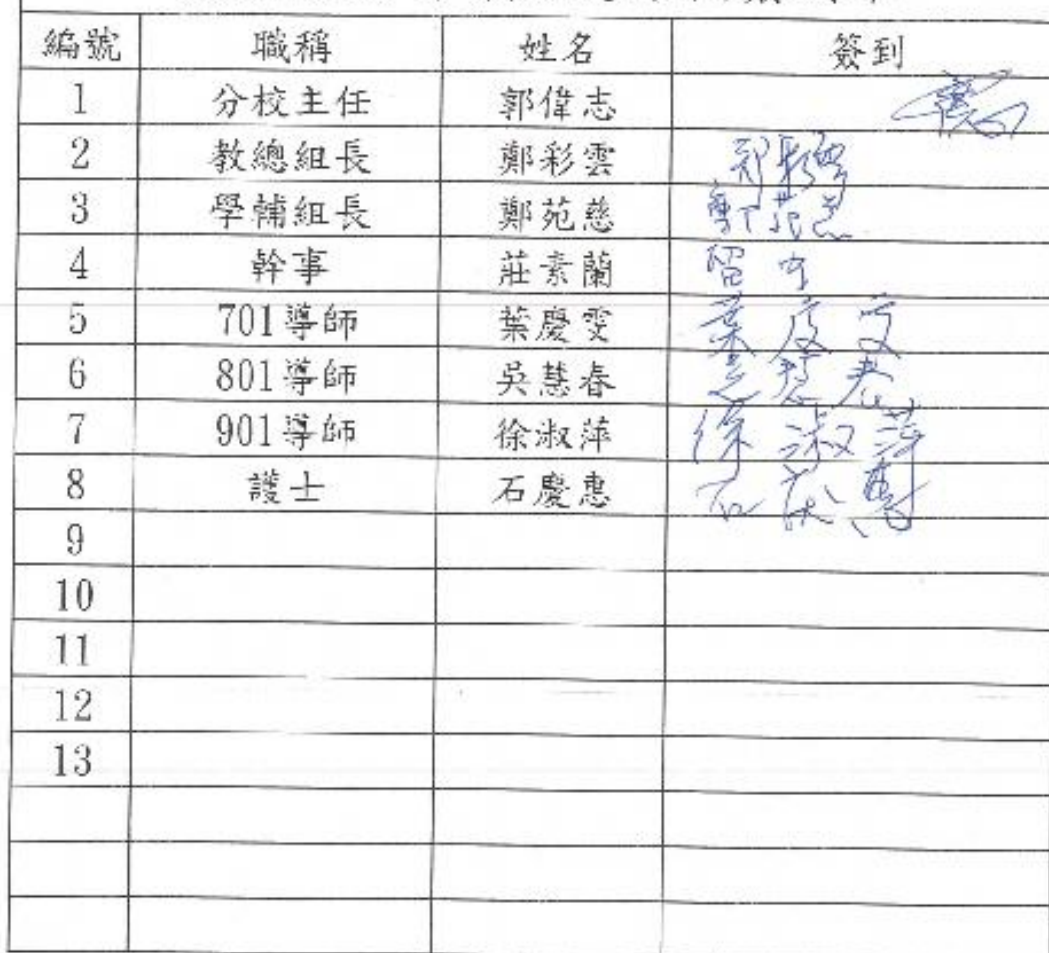 編號 職稱 姓名 簽到
1 分校主任 郭偉志
2 教總組長 鄭彩雲 鄭彩雲
3 學輔組長 鄭苑慈 鄭苑慈
4 幹事 莊素蘭 留守
5 701導師 葉慶雯 葉慶雯
6 801導師 吳慧春 吳慧春
7 901導師 徐淑萍 徐淑萍
8 護士 石慶惠 石慶惠
9
10
11
12
13